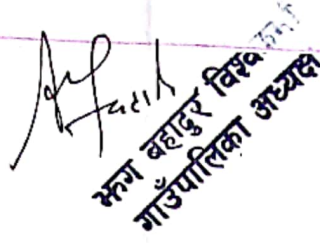 झग बहादुर विश्वकर्मा
गाउँपालिका अध्यक्ष